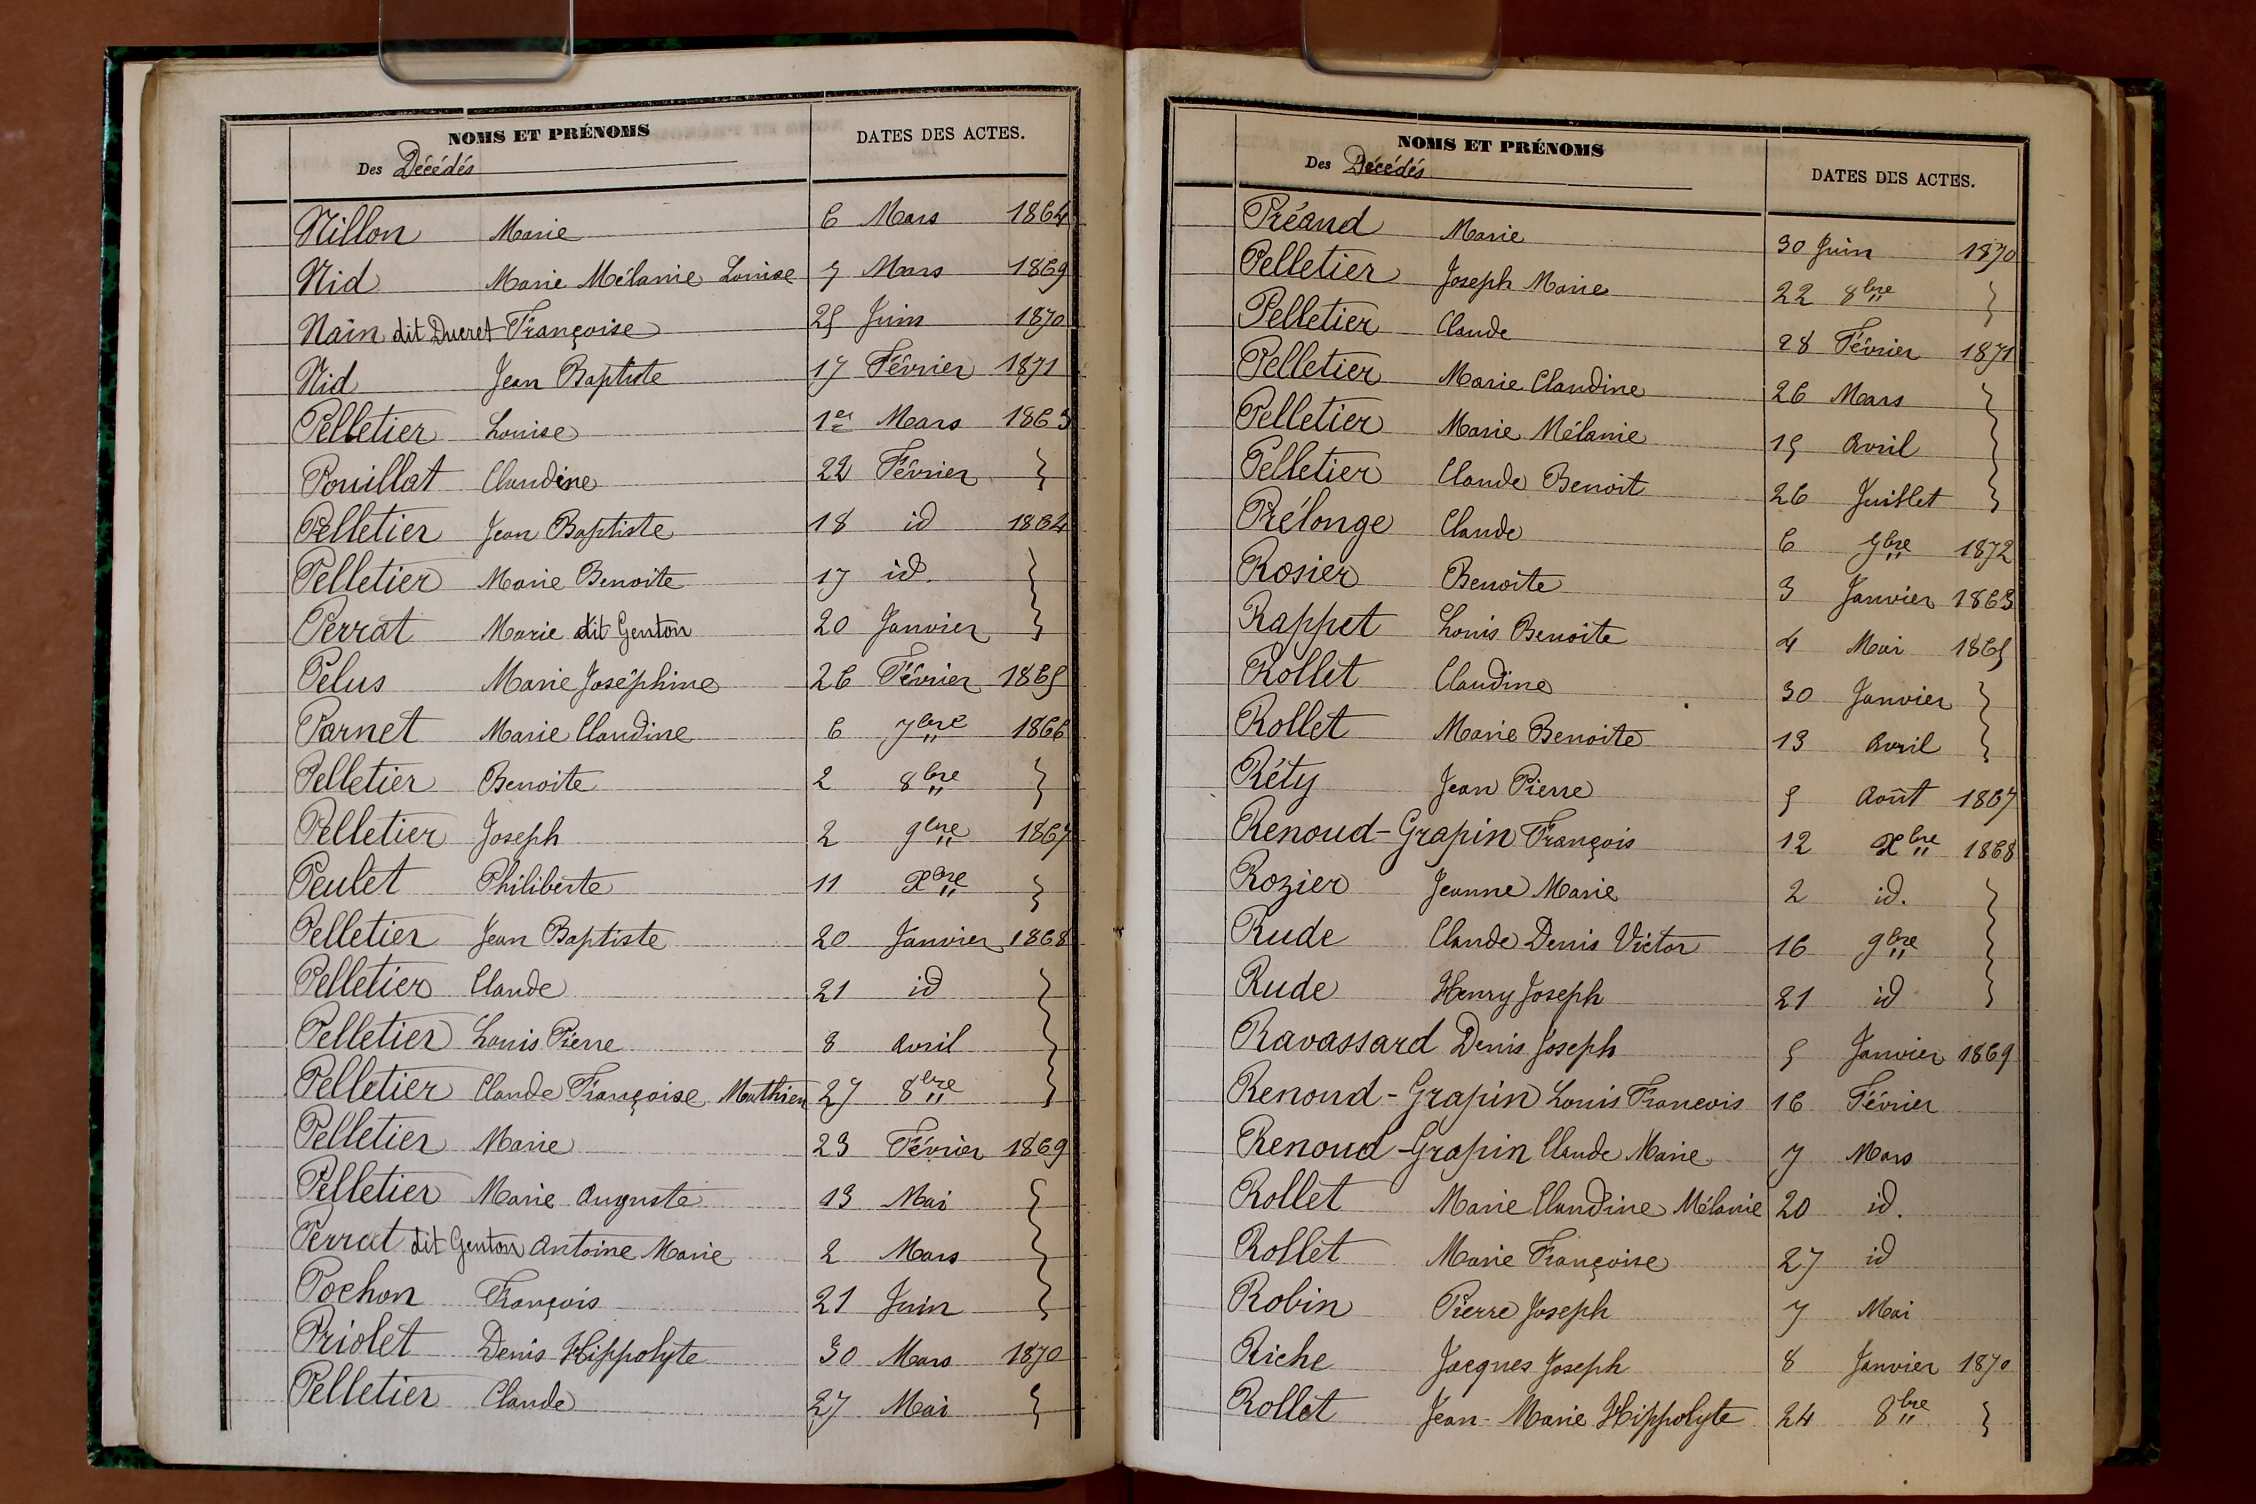 NOMS ET PRÉNOMS
DATES DES ACTES.
Des Décédés
Nillon Marie 6 Mars 1864
Nid Marie Mélanie Louise 7 Mars 1869
Nain dit Ducret Françoise 25 Juin 1870
Nid Jean Baptiste 17 Février 1871
Pelletier Louise 1er Mars 1863
Pouillat Claudine 22 Février
Pelletier Jean Baptiste 18 id 1864
Pelletier Marie Benoite 17 id.
Perrat Marie dit Genton 20 Janvier
Pelus Marie Joséphine 26 Février 1865
Parnet Marie Claudine 6 7bre 1866
Pelletier Benoite 2 8bre
Pelletier Joseph 2 9bre 1867
Peulet Philiberte 11 Xbre
Pelletier Jean Baptiste 20 Janvier 1868
Pelletier Claude 21 id
Pelletier Louis Pierre 8 Avril
Pelletier Claude Françoise Mathieu 27 8bre
Pelletier Marie 23 Février 1869
Pelletier Marie Auguste 13 Mai
Perrat dit Genton Antoine Marie 2 Mars
Pochon François 21 Juin
Priolet Denis Hippolyte 30 Mars 1870
Pelletier Claude 27 Mai
NOMS ET PRÉNOMS
DATES DES ACTES.
Des Décédés
Préand Marie 30 Juin 1870
Pelletier Joseph Marie 22 8bre
Pelletier Claude 28 Février 1871
Pelletier Marie Claudine 26 Mars
Pelletier Marie Mélanie 15 Avril
Pelletier Claude Benoit 26 Juillet
Prélonge Claude 6 9bre 1872
Rosier Benoite 3 Janvier 1863
Rappet Louis Benoite 4 Mai 1865
Rollet Claudine 30 Janvier
Rollet Marie Benoite 13 Avril
Réty Jean Pierre 5 Août 1867
Renoud-Grapin François 12 Xbre 1868
Rozier Jeanne Marie 2 id.
Rude Claude Denis Victor 16 9bre
Rude Henry Joseph 21 id
Ravassard Denis Joseph 5 Janvier 1869
Renoud-Grapin Louis Francois 16 Février
Renoud-Grapin Claude Marie 7 Mars
Rollet Marie Claudine Mélanie 20 id.
Rollet Marie Françoise 27 id
Robin Pierre Joseph 7 Mai
Riche Jacques Joseph 8 Janvier 1870
Rollet Jean-Marie Hippolyte 24 8bre